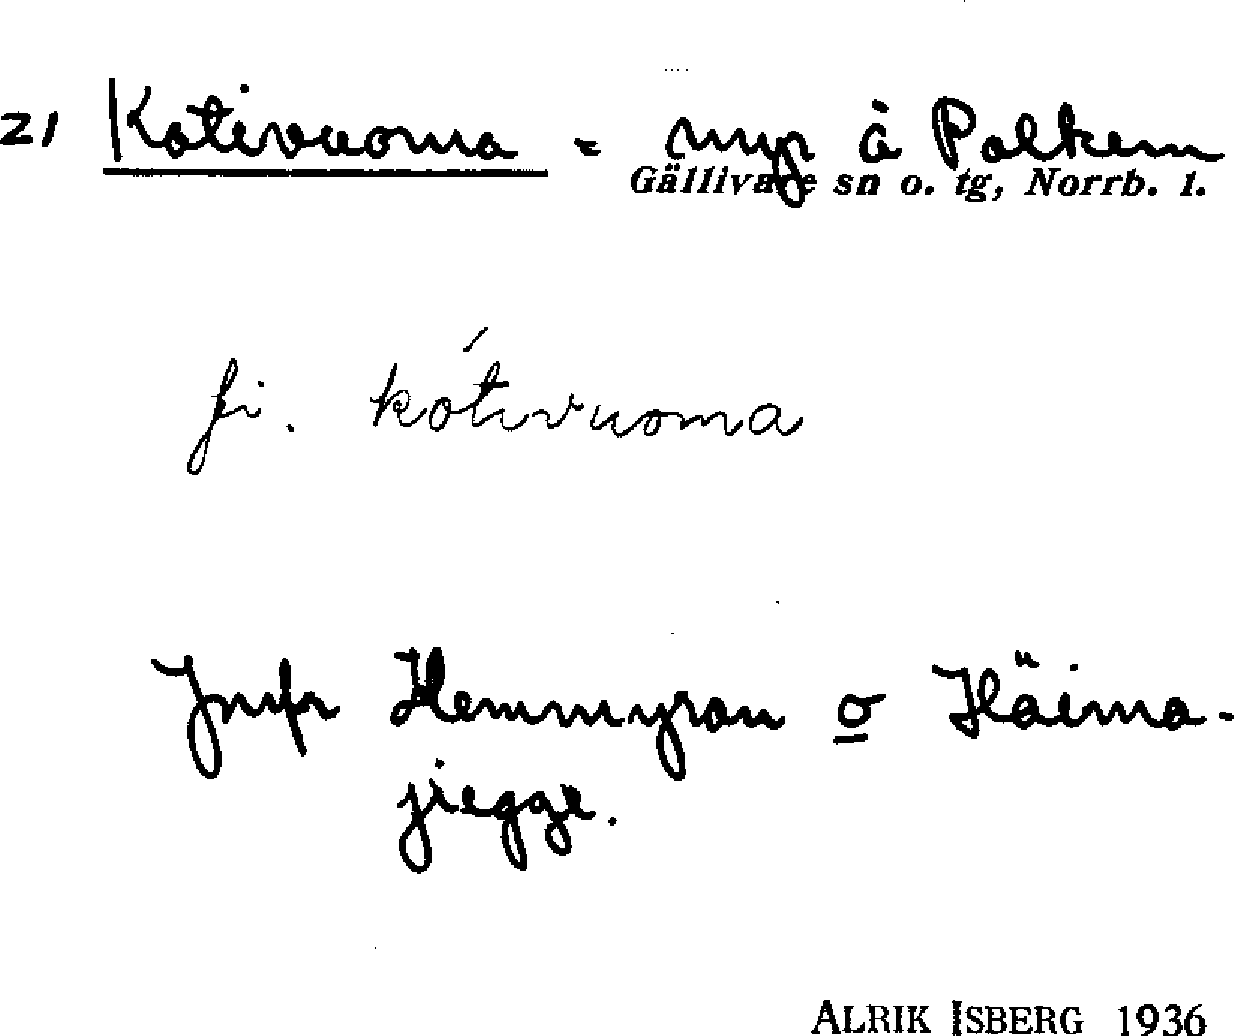 21 Kotivuoma = myr å Polkem
Gällivare sn o. tg, Norrb. l.
fi. kótivuoma
Jmfr Hemmyran o Häima-
jiegge.
ALRIK ISBERG 1936